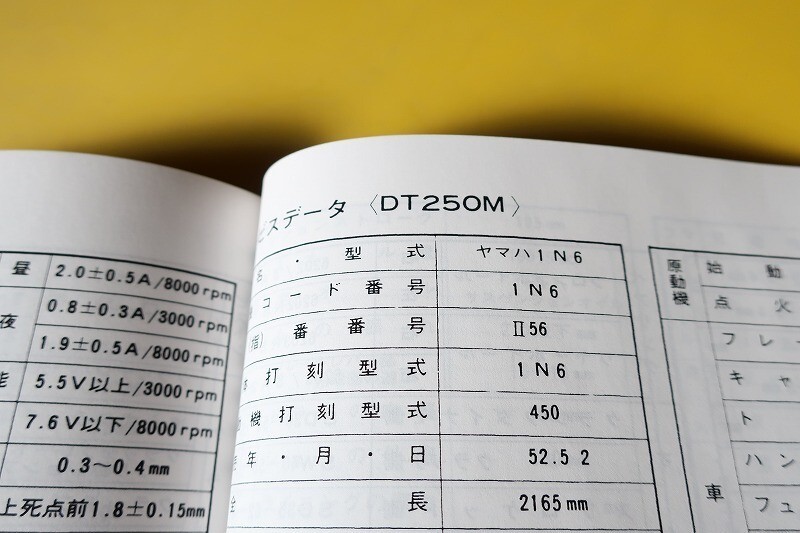 昼 2.0±0.5A/8000rpm
夜 0.8±0.3A/3000rpm
1.9±0.5A/8000rpm
能 5.5V以上/3000rpm
7.6V以下/8000rpm
0.3〜0.4mm
上死点前1.8±0.15mm
ビスデータ〈DT250M〉
名・型式 ヤマハ1N6
コード番号 1N6
指)番番号 Ⅱ56
打刻型式 1N6
機打刻型式 450
年・月・日 52.5 2
全長 2165mm
原動機 始動
点火
車 フレー
キャ
ト
ハン
フュ